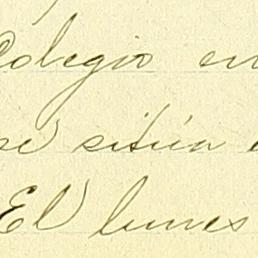 Colegio en
se sitúa
El lunes